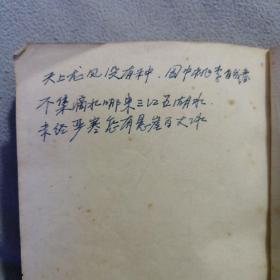 天上龙凤没有种，园中桃李
不集滴水哪来三江五湖水
未经严寒怎有悬崖百丈冰